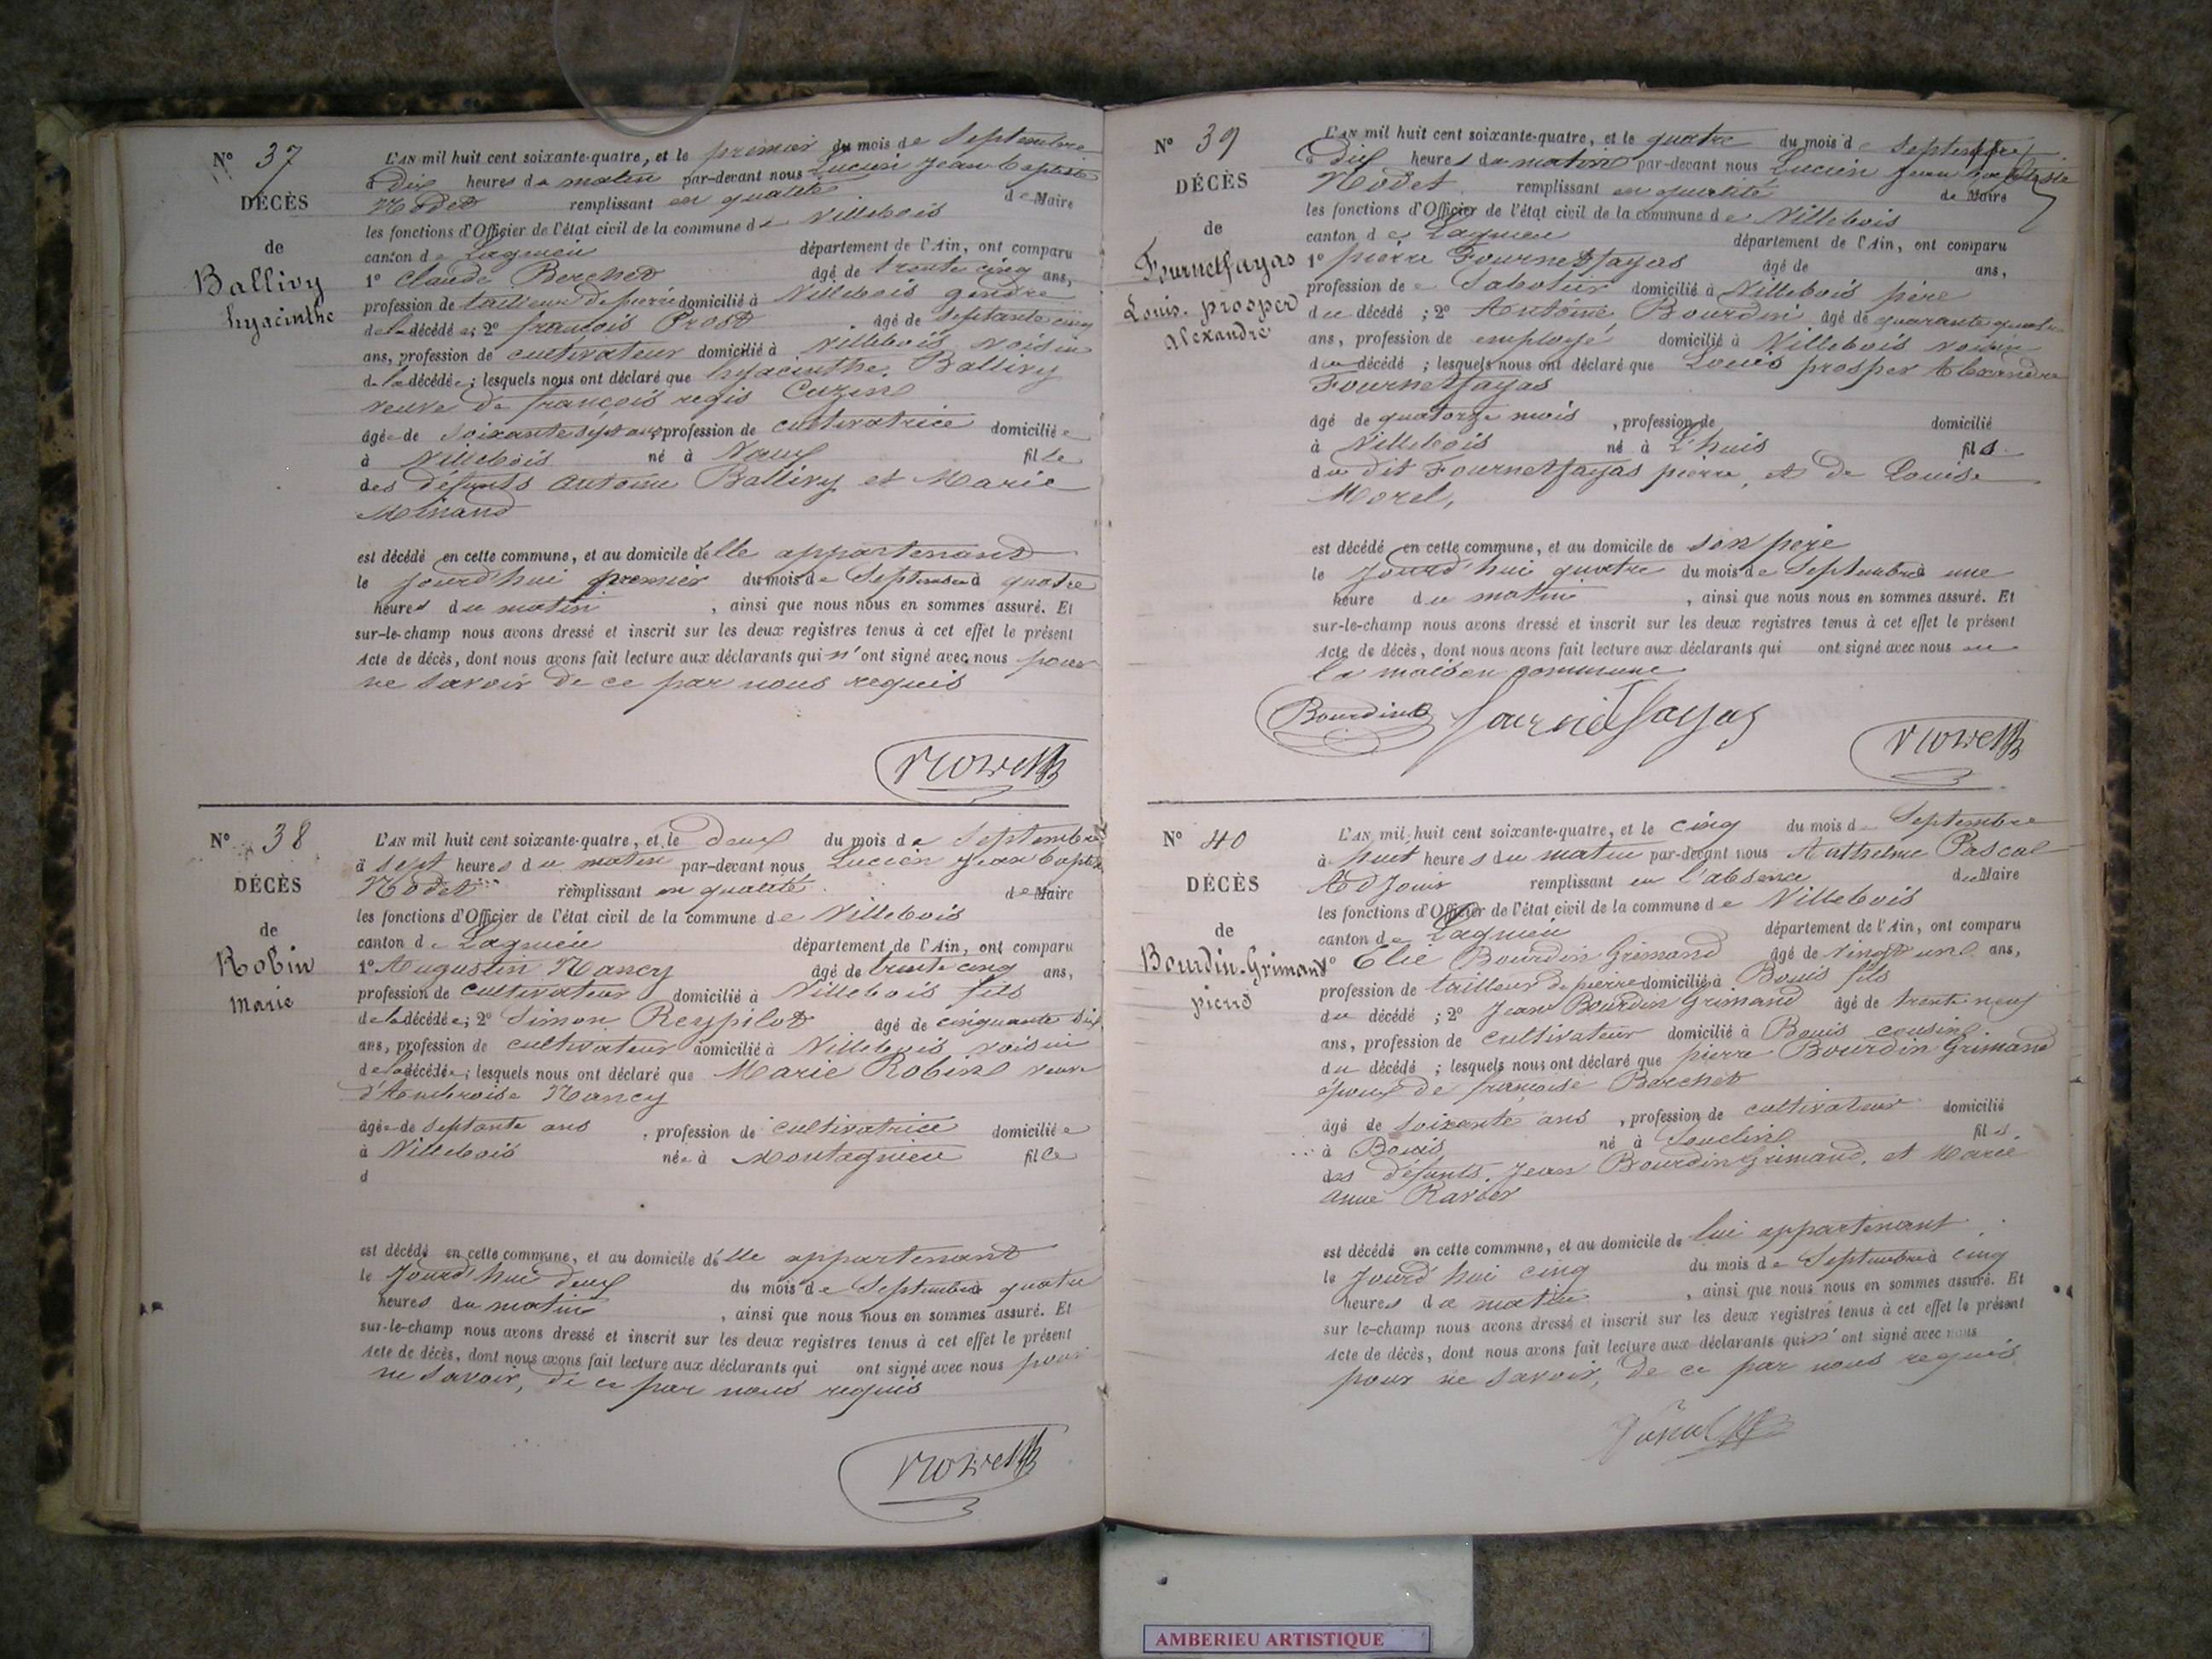 N° 37
DÉCÈS
de
Ballivy
hyacinthe
L'AN mil huit cent soixante-quatre, et le premier du mois de Septembre
à dix heures du matin par-devant nous Lucien Jean-Baptiste
Nodet remplissant en qualité de Maire
les fonctions d'Officier de l'état civil de la commune de Villebois
canton de Lagnieu département de l'Ain, ont comparu
1° Claude Berchet âgé de trente cinq ans,
profession de tailleur de pierre domicilié à Villebois gendre
de la décédée; 2° françois Prost âgé de septante cinq
ans, profession de cultivateur domicilié à Villebois voisin
de la décédée; lesquels nous ont déclaré que hyacinthe Ballivy
veuve de françois regis Cuzin
âgée de soixante sept ans, profession de cultivatrice domiciliée
à Villebois né à fille
des défunts antoine Ballivy et Marie
Minand
est décédé en cette commune, et au domicile d'elle appartenant
le jourd'hui premier du mois de Septembre à quatre
heures du matin, ainsi que nous nous en sommes assuré. Et
sur-le-champ nous avons dressé et inscrit sur les deux registres tenus à cet effet le présent
Acte de décès, dont nous avons fait lecture aux déclarants qui n'ont signé avec nous pour
ne savoir de ce par nous requis
Nodet
N° 38
DÉCÈS
de
Robin
marie
L'AN mil huit cent soixante-quatre, et le deux du mois de Septembre
à sept heures du matin par-devant nous Lucien Jean baptiste
Nodet remplissant en qualité de Maire
les fonctions d'Officier de l'état civil de la commune de Villebois
canton de Lagnieu département de l'Ain, ont comparu
1° Augustin Nancy âgé de trente cinq ans,
profession de cultivateur domicilié à Villebois fils
de la décédée; 2° Simon Reypilot âgé de cinquante six
ans, profession de cultivateur domicilié à Villebois voisin
de la décédée; lesquels nous ont déclaré que Marie Robin veuve
d'Ambroise Nancy
âgée de septante ans, profession de cultivatrice domiciliée
à Villebois née à Montagnieu fille
d
est décédé en cette commune, et au domicile d'elle appartenant
le jourd'hui deux du mois de Septembre à quatre
heures du matin, ainsi que nous nous en sommes assuré. Et
sur-le-champ nous avons dressé et inscrit sur les deux registres tenus à cet effet le présent
Acte de décès, dont nous avons fait lecture aux déclarants qui ont signé avec nous pour
ne savoir, de ce par nous requis
Nodet
N° 39
DÉCÈS
de
Fournet fayas
Louis. prosper
alexandre
L'AN mil huit cent soixante-quatre, et le quatre du mois de Septembre
à dix heures du matin par-devant nous Lucien Jean baptiste
Nodet remplissant en qualité de Maire
les fonctions d'Officier de l'état civil de la commune de Villebois
canton de Lagnieu département de l'Ain, ont comparu
1° pierre Fournet fayas âgé de ans,
profession de Sabotier domicilié à Villebois père
du décédé; 2° Antoine Bourdin âgé de quarante quatre
ans, profession de employé domicilié à Villebois voisin
du décédé; lesquels nous ont déclaré que Louis prosper Alexandre
Fournet fayas
âgé de quatorze mois, profession de domicilié
à Villebois né à L'huis fils
du dit Fournet fayas pierre, et de Louise
Morel,
est décédé en cette commune, et au domicile de son père
le jourd'hui quatre du mois de Septembre à une
heure du matin, ainsi que nous nous en sommes assuré. Et
sur-le-champ nous avons dressé et inscrit sur les deux registres tenus à cet effet le présent
Acte de décès, dont nous avons fait lecture aux déclarants qui ont signé avec nous en
la maison commune
Bourdin Fournet fayas
Nodet
N° 40
DÉCÈS
de
Bourdin-Grimand
pierre
L'AN mil huit cent soixante-quatre, et le cinq du mois d Septembre
à huit heures du matin par-devant nous Anthelme Pascal
Adjoint remplissant en l'absence du Maire
les fonctions d'Officier de l'état civil de la commune de Villebois
canton de Lagnieu département de l'Ain, ont comparu
1° Elie Bourdin Grimand âgé de vingt un ans,
profession de tailleur de pierre domicilié à Bouis fils
du décédé; 2° Jean Bourdin Grimand âgé de trente neuf
ans, profession de cultivateur domicilié à Bouis cousin
du décédé; lesquels nous ont déclaré que pierre Bourdin Grimand
époux de françoise Berchet
âgé de soixante ans, profession de cultivateur domicilié
à Bouis né à Souclin fils
des défunts. Jean Bourdin Grimand, et Marie
anne
est décédé en cette commune, et au domicile de lui appartenant
le jourd'hui cinq du mois de Septembre à cinq
heures du matin, ainsi que nous nous en sommes assuré. Et
sur le-champ nous avons dressé et inscrit sur les deux registres tenus à cet effet le présent
Acte de décès, dont nous avons fait lecture aux déclarants qui n'ont signé avec nous
pour ne savoir, de ce par nous requis
Pascal
AMBERIEU ARTISTIQUE